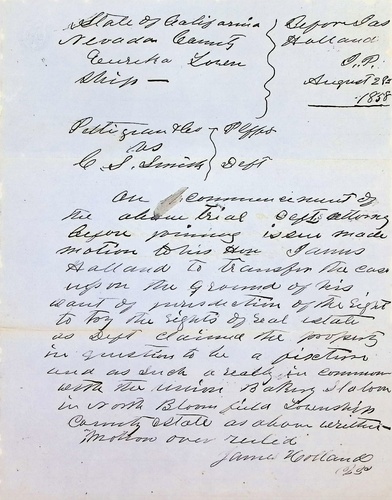 State of California Before Jas
Nevada County Holland
Eureka Town J.P.
ship — August 28
1858
Pettigrew & Co Plffs
vs
C. S. Smith Deft
On commencement of
the above trial Deft attorney
before joining issue made
motion to his Hon James
Holland to transfer the case
up on the Ground of his
want of jurisdiction of the right
to try the rights of real estate
as Deft claimed the property
in question to be a fixture
and as such a realty in common
with the Union Baking Saloon
in North Bloomfield Township
County & State as above written
Motion over ruled
James Holland